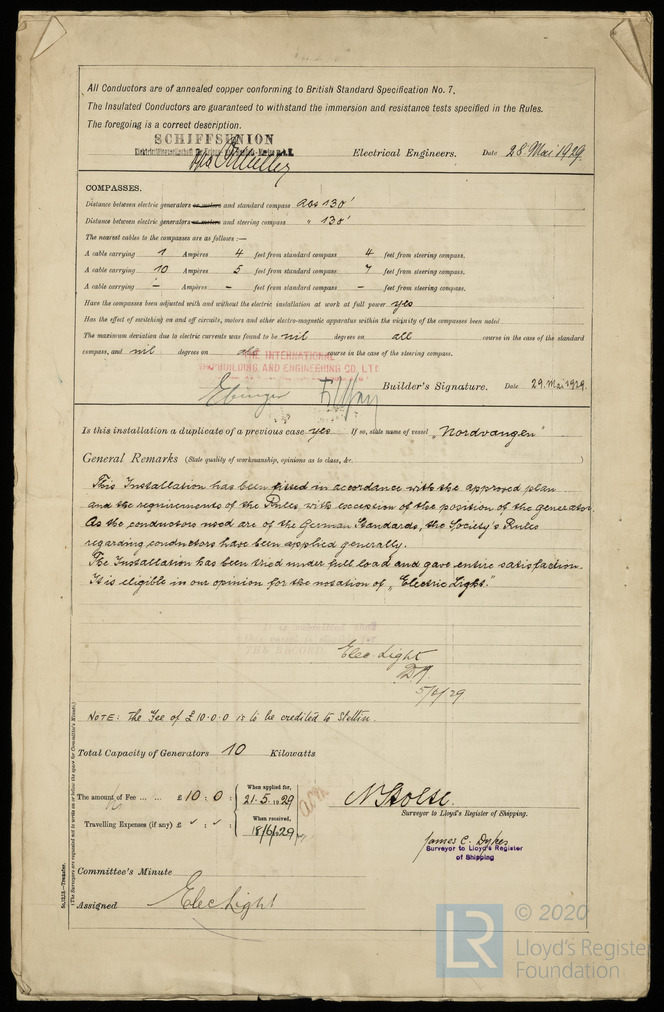 All Conductors are of annealed copper conforming to British Standard Specification No. 7.
The Insulated Conductors are guaranteed to withstand the immersion and resistance tests specified in the Rules.
The foregoing is a correct description.
SCHIFFSUNION
Electrical Engineers. Date 28. Mai 1929.
COMPASSES.
Distance between electric generators or motors and standard compass abs 130'
Distance between electric generators or motors and steering compass " 130'
The nearest cables to the compasses are as follows :—
A cable carrying 1 Ampères 4 feet from standard compass 4 feet from steering compass.
A cable carrying 10 Ampères 5 feet from standard compass 7 feet from steering compass.
A cable carrying – Ampères – feet from standard compass – feet from steering compass.
Have the compasses been adjusted with and without the electric installation at work at full power yes
Has the effect of switching on and off circuits, motors and other electro-magnetic apparatus within the vicinity of the compasses been noted
The maximum deviation due to electric currents was found to be nil degrees on all course in the case of the standard
compass, and nil degrees on course in the case of the steering compass.
THE INTERNATIONAL
SHIPBUILDING AND ENGINEERING CO. LTD
Builder's Signature. Date 29. Mai 1929.
Is this installation a duplicate of a previous case yes If so, state name of vessel „Nordvangen"
General Remarks (State quality of workmanship, opinions as to class, &c. )
This Installation has been fitted in accordance with the approved plan
and the requirements of the Rules with exception of the position of the generator.
As the conductors used are of the German Standards, the Society's Rules
regarding conductors have been applied generally.
The Installation has been tried under full load and gave entire satisfaction.
It is eligible in our opinion for the notation of „Electric Light."
THE RECORD
Elec. Light
5/6/29
NOTE: The Fee of £10.0.0 is to be credited to Stettin.
Total Capacity of Generators 10 Kilowatts
The amount of Fee ... ... £ 10 : 0 :
When applied for,
21.5.1929
Travelling Expenses (if any) £ : :
When received,
18/6/1929
N Stolte.
Surveyor to Lloyd's Register of Shipping.
James C. Dykes
Surveyor to Lloyd's Register
of Shipping
Committee's Minute
Assigned Elec Light
(The Surveyors are requested not to write on or below the space for Committee's Minute.)
LR © 2020
Lloyd's Register
Foundation